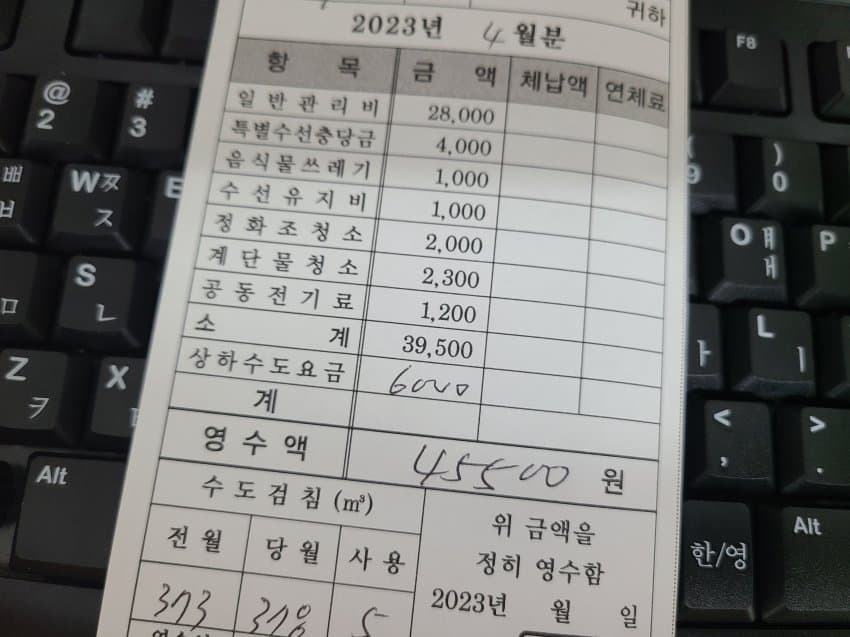 귀하
2023년 4월분
항 목 금 액 체납액 연체료
일반관리비 28,000
특별수선충당금 4,000
음식물쓰레기 1,000
수선유지비 1,000
정화조청소 2,000
계단물청소 2,300
공동전기료 1,200
소 계 39,500
상하수도요금 6000
계
영수액 45500 원
수도검침 (㎥)
전월 당월 사용
373 378 5
위 금액을
정히 영수함
2023년 월 일
F8
@
2
#
3
)
9
0
W ㅉ
ㅈ
E
O ㅒ
ㅐ
P
S
ㄴ
L
ㅣ
Z
ㅋ
X
<
,
>
.
Alt
한/영
Alt